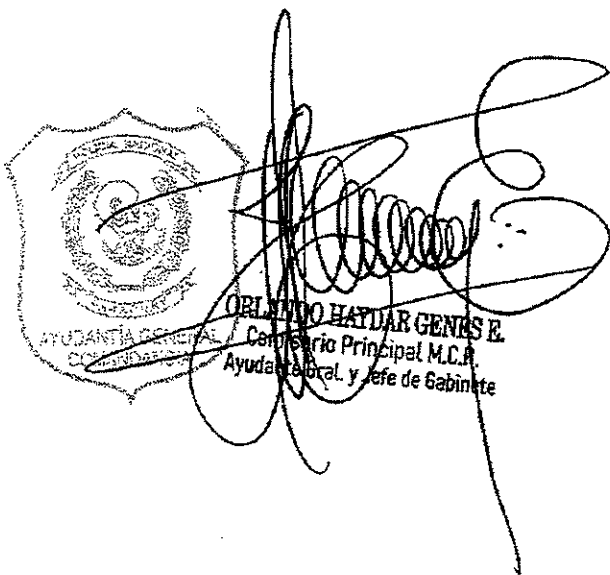 POLICIA NACIONAL
AYUDANTÍA GENERAL
COMANDANCIA
ORLANDO HAYDAR GENES E.
Comisario Principal M.C.P.
Ayudante Gral. y Jefe de Gabinete